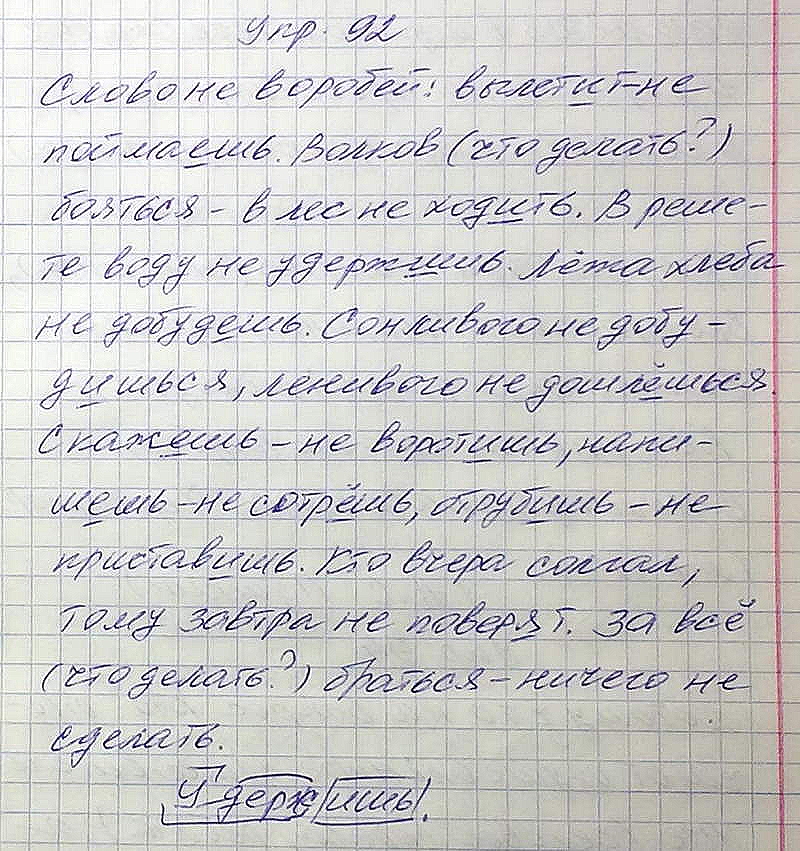 Упр. 92
Слово не воробей: вылетит-не
поймаешь. Волков (что делать?)
бояться - в лес не ходить. В реше-
те воду не удержишь. Лёжа хлеба
не добудешь. Сонливого не добу-
дишься, ленивого не дошлёшься.
Скажешь - не воротишь, напи-
шешь - не сотрёшь, отрубишь - не
приставишь. Кто вчера солгал,
тому завтра не поверят. За всё
(что делать?) браться - ничего не
сделать.
Удержишь.